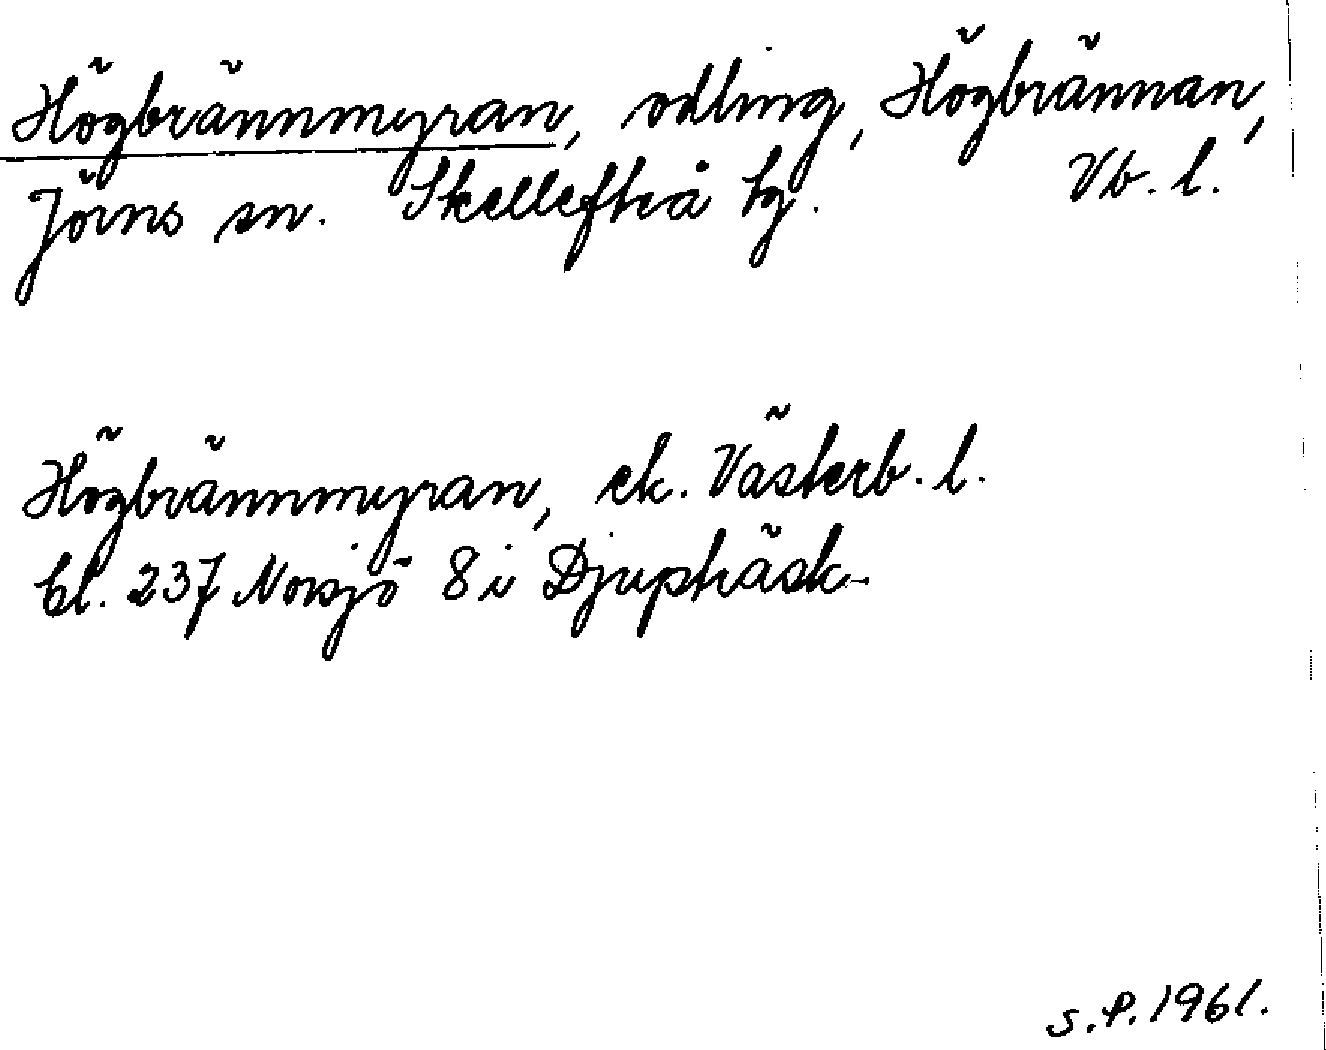 Högbrännmyran, odling, Högbrännan,
Jörns sn. Skellefteå tg. Vb. l.
Högbrännmyran, ek. Västerb. l.
bl. 237 Norsjö 8 i Djupträsk
S.P. 1961.